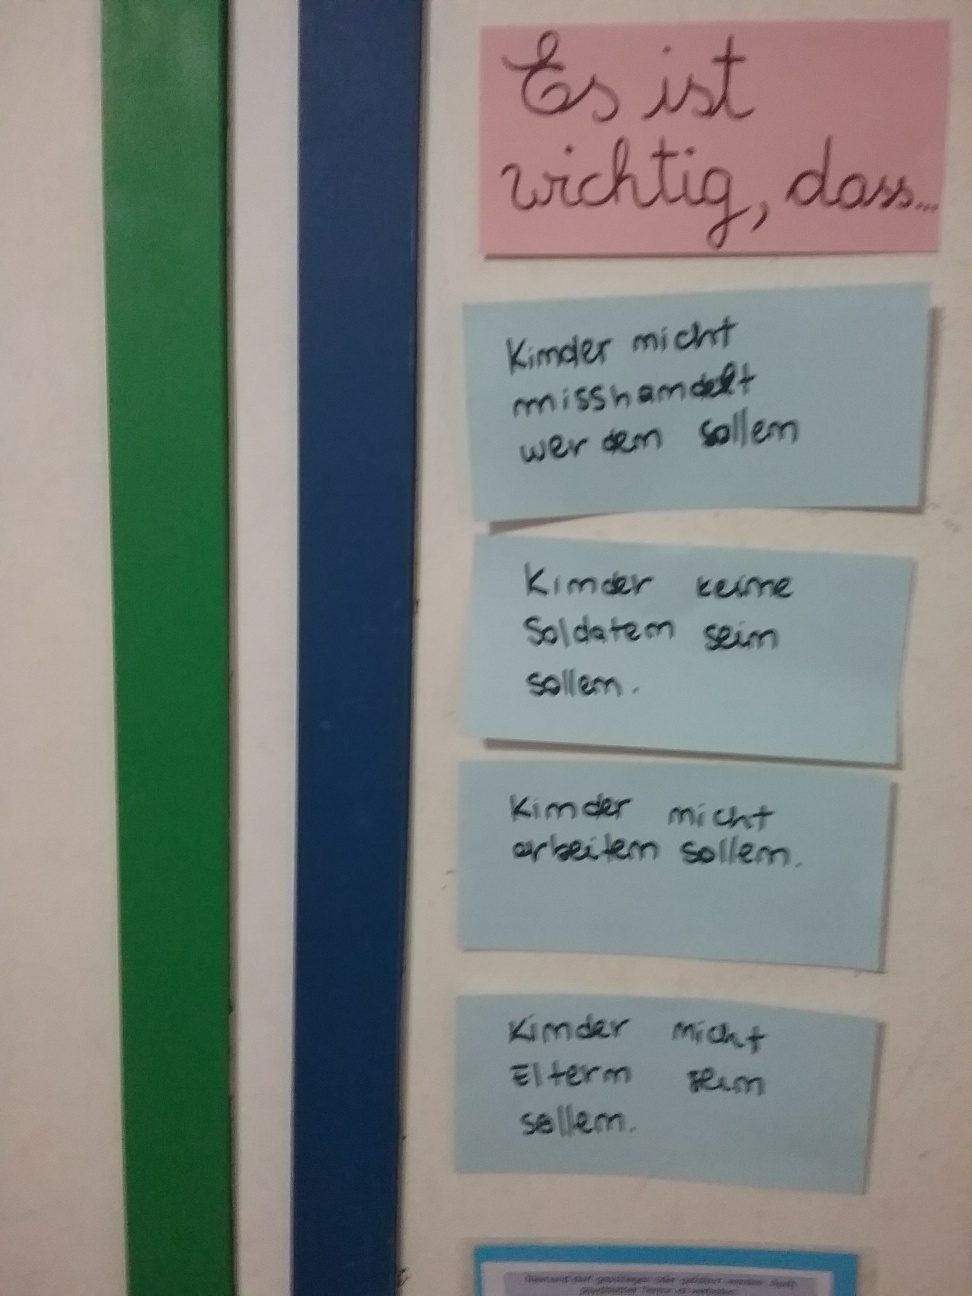 Es ist
wichtig, dass...
Kinder nicht
misshandelt
werden sollen
Kinder keine
Soldaten sein
sollen.
Kinder nicht
arbeiten sollen.
Kinder nicht
Eltern sein
sollen.